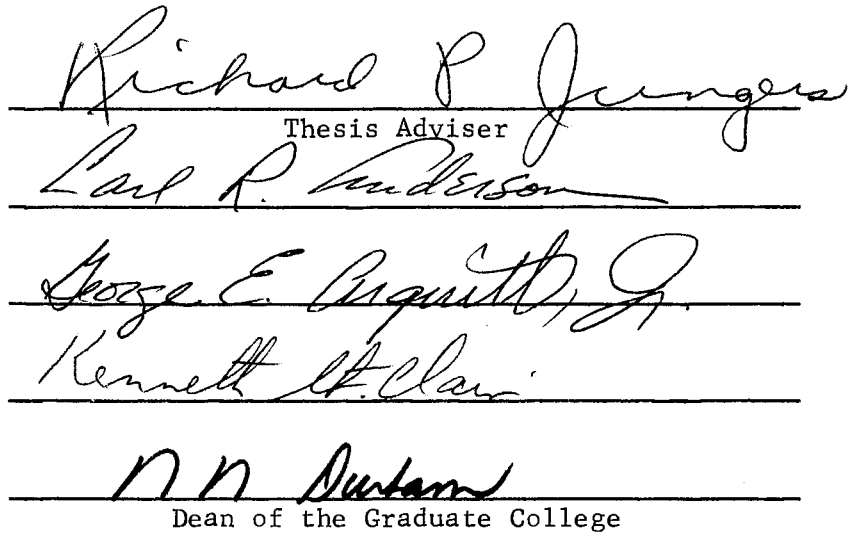 Richard P Jungers
Thesis Adviser
Carl R. Anderson
George E. Arquitt, Jr.
Kenneth St. Clair
N N Durham
Dean of the Graduate College